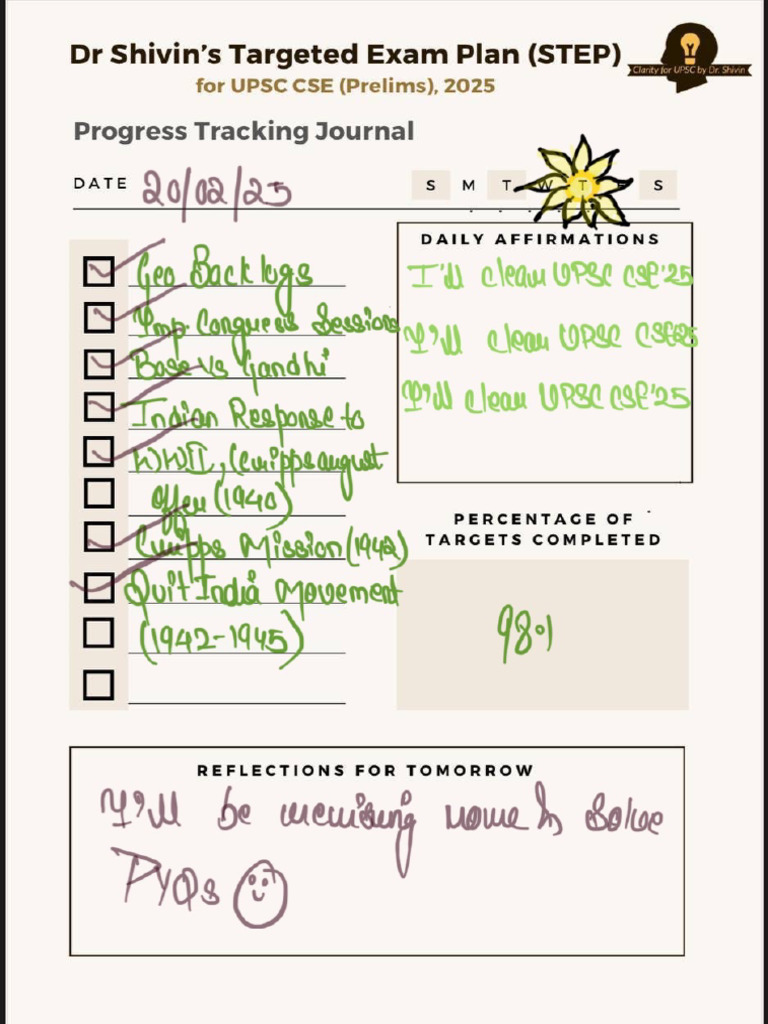 Dr Shivin's Targeted Exam Plan (STEP)
for UPSC CSE (Prelims), 2025
Clarity for UPSC by Dr. Shivin
Progress Tracking Journal
DATE 20/02/25
S M T W T F S
Geo Backlogs
Imp Congress Sessions
Bose vs Gandhi
Indian Response to
WWII, Cripps august
offer (1940)
Cripps Mission (1942)
Quit India Movement
(1942-1945)
DAILY AFFIRMATIONS
I'll clear UPSC CSE'25
I'll clear UPSC CSE'25
I'll clear UPSC CSE'25
PERCENTAGE OF
TARGETS COMPLETED
98%
REFLECTIONS FOR TOMORROW
I'll be revising more & solve
PYQs